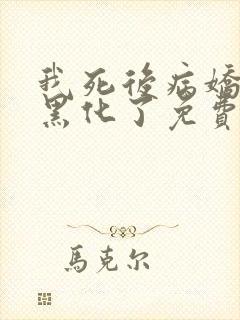 我死後病嬌
黑化了免費
馬克尔